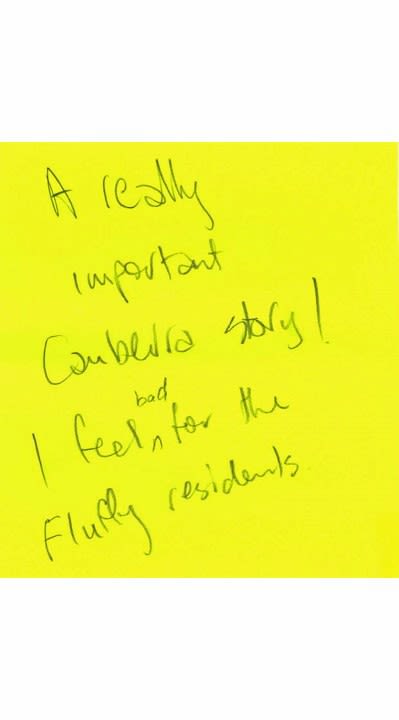 A really
important
Canberra story!
I feel bad for the
Fluffy residents.